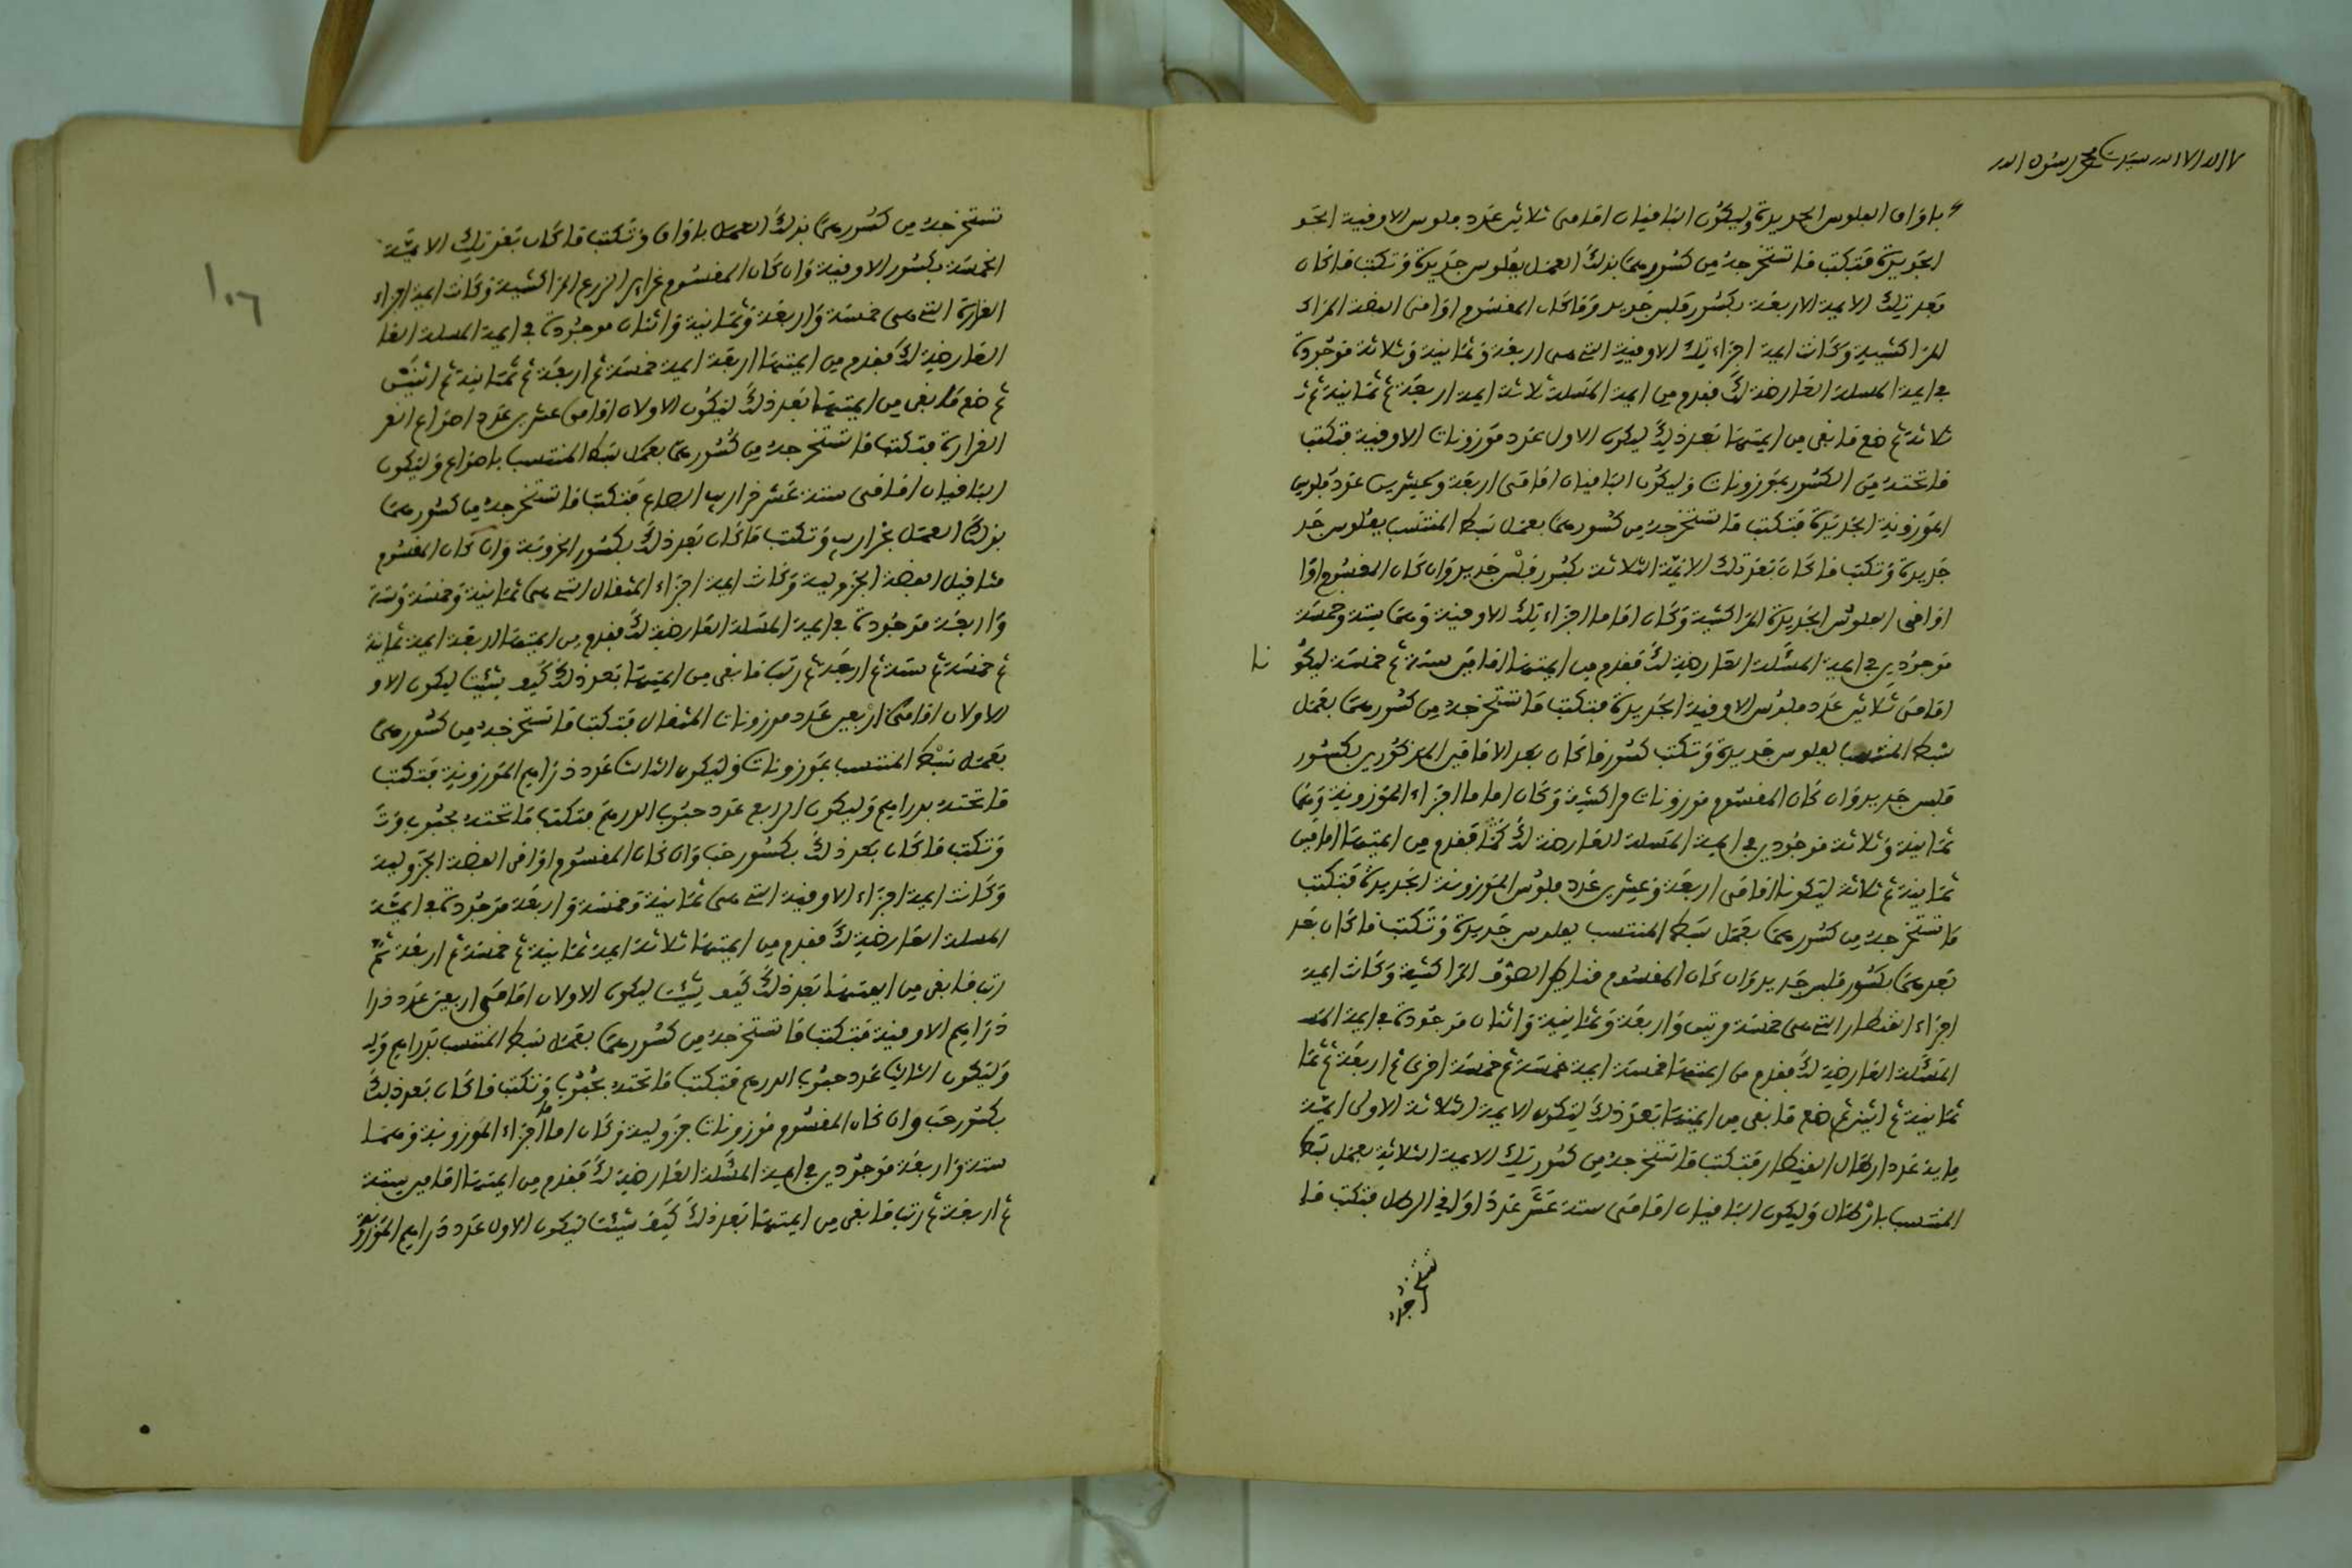 لا اله الا الله سيدنا محمد رسول الله
باواق الفلوس الجديدة وليكون الباقيان امامى ثلاثين عدد فلوس الاوقية الجد
الجديدة فتكتب ما تستخرجه من كسورهما بذلك العمل بفلوس جديدة وتكتب ما كان
بعد تلك الايمة الاربعة بكسور فلس جديد وما كان المقسوم اواقى الفضة المراك
المراكشية وكانت ايمة اجزاء تلك الاوقية التي هى اربعة وثمانية وثلاثة موجودة
في ايمة المسلة العارضة لك فقدم من ايمة المسلة ثلاثة ايمة اربعة ثم ثمانية ثم ث
ثلاثة ثم ضع ما بقى من ايمتها بعد ذلك ليكون الاول عدد موزونات الاوقية فتكتب
ما تحته من الكسور بموزونات وليكون الباقيان امامى اربعة وعشرين عدد فلوس
الموزونة الجديدة فتكتب ما تستخرجه من كسورهما بعمل بسط المنتسب بفلوس جد
جديدة وتكتب ما كان بعد تلك الايمة الثلاثة بكسور فلس جديد وان كان المقسوم اوا
اواقى الفلوس الجديدة المراكشية وكان اماما اجزاء تلك الاوقية وهما ستة وخمسة
موجودين في ايمة المسئلة العارضة لك فقدم من ايمتها امامين ستة ثم خمسة ليكو
نا
امامى ثلاثين عدد فلوس الاوقية الجديدة فتكتب ما تستخرجه من كسورهما بعمل
بسط المنتسب بفلوس جديدة وتكتب كسور ما كان بعد الامامين المذكورين بكسور
فلس جديد وان كان المقسوم موزونات مراكشية وكان اماما اجزاء الموزونة وهما
ثمانية وثلاثة موجودين في ايمة المسلة العارضة لك فقدم من ايمتها امامين
ثمانية ثم ثلاثة ليكونا امامى اربعة وعشرين عدد فلوس الموزونة الجديدة فتكتب
ما تستخرجه من كسورهما بعمل بسط المنتسب بفلوس جديدة وتكتب ما كان بعد
بعدهما بكسور فلس جديد وان كان المقسوم قناطر الصوف المراكشية وكانت ايمة
اجزاء القنطار التي هى خمسة مرتين واربعة وثمانية واثنان موجودة في ايمة المس
المسئلة العارضة لك فقدم من ايمتها خمسة ايمة خمسة ثم خمسة اخرى ثم اربعة ثم ثما
ثمانية ثم اثنين ثم ضع ما بقى من ايمتها بعد ذلك ليكون الايمة الثلاثة الاولى ايمة
ماية عدد ارطال القنطار فتكتب ما تستخرجه من كسور تلك الايمة الثلاثة بعمل بسط
المنتسب بارطال وليكون الباقيان امامى ستة عشر عدد اواقي الرطل فتكتب ما
تستخرجه
تستخرجه من كسورهما بذلك العمل باواق وتكتب ما كان بعد تلك الايمة
الخمسة بكسور الاوقية وان كان المقسوم غراير الزرع المراكشية وكانت ايمة اجزاء
الغرارة التي هى خمسة واربعة وثمانية واثنان موجودة في ايمة المسلة العا
العارضة لك فقدم من ايمتها اربعة ايمة خمسة ثم اربعة ثم ثمانية ثم اثنين
ثم ضع ما بقى من ايمتها بعد ذلك ليكون الاولان امامى عشرين عدد اصواع الغر
الغرارة فتكتب ما تستخرجه من كسورهما بعمل بسط المنتسب باصواع وليكون
الباقيان امامى ستة عشر خراريب الصاع فتكتب ما تستخرجه من كسورهما
بذلك العمل بخراريب وتكتب ما كان بعد ذلك بكسور الخروبة وان كان المقسوم
مثاقيل الفضة الجزولية وكانت ايمة اجزاء المثقال التي هى ثمانية وخمسة وستة
واربعة موجودة في ايمة المسلة العارضة لك فقدم من ايمتها اربعة ايمة ثمانية
ثم خمسة ثم ستة ثم اربعة ثم رتب ما بقى من ايمتها بعد ذلك كيف شيت ليكون الاو
الاولان امامى اربعين عدد موزونات المثقال فتكتب ما تستخرجه من كسورهما
بعمل بسط المنتسب بموزونات وليكون الثالث عدد دراهم الموزونة فتكتب
ما تحته بدراهم وليكون الرابع عدد حبوب الدرهم فتكتب ما تحته بحبوب وت
وتكتب ما كان بعد ذلك بكسور حب وان كان المقسوم اواقى الفضة الجزولية
وكانت ايمة اجزاء الاوقية التي هى ثمانية وخمسة واربعة موجودة في ايمة
المسلة العارضة لك فقدم من ايمتها ثلاثة ايمة ثمانية ثم خمسة ثم اربعة ثم
رتب ما بقى من ايمتها بعد ذلك كيف شيت ليكون الاولان امامى اربعين عدد درا
دراهم الاوقية فتكتب ما تستخرجه من كسورهما بعمل بسط المنتسب بدراهم ولي
وليكون الثالث عدد حبوب الدرهم فتكتب ما تحته بحبوب وتكتب ما كان بعد ذلك
بكسور حب وان كان المقسوم موزونات جزولية وكان اماما اجزاء الموزونة وهما
ستة واربعة موجودين في ايمة المسئلة العارضة لك فقدم من ايمتها امامين ستة
ثم اربعة ثم رتب ما بقى من ايمتها بعد ذلك كيف شيئت ليكون الاول عدد دراهم الموزونة
١٠٦